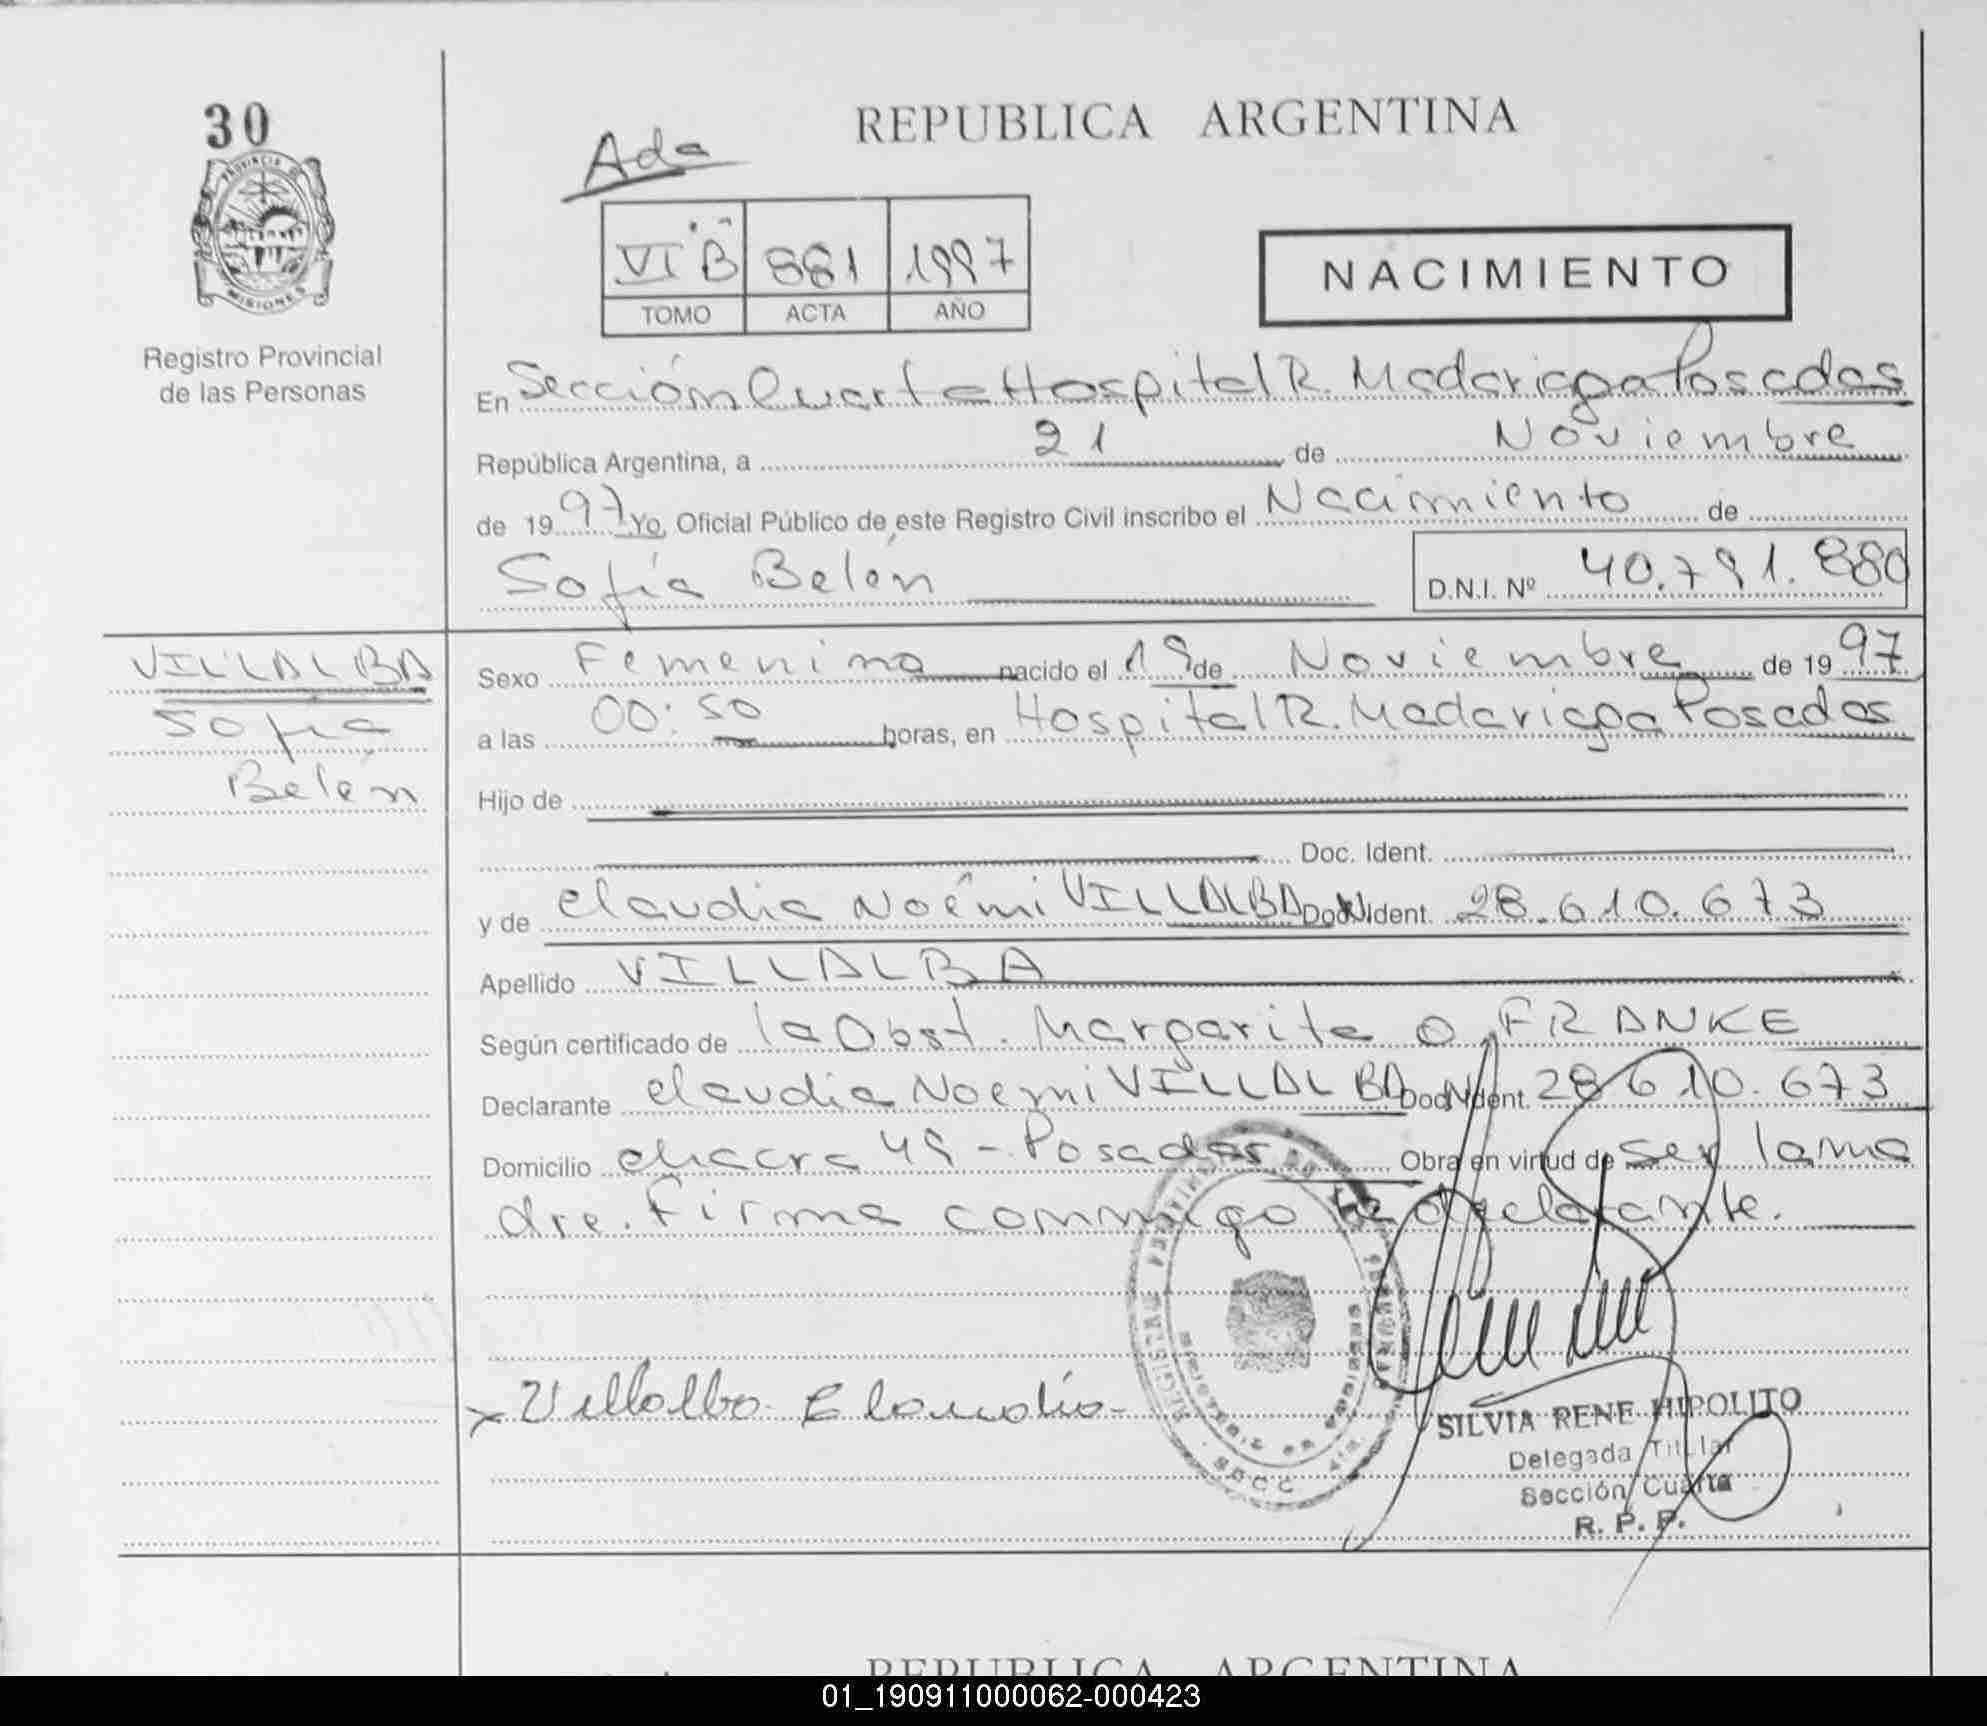 30
PROVINCIA DE
MISIONES
Registro Provincial
de las Personas
REPUBLICA ARGENTINA
Ada
VI "B" 881 1997
TOMO ACTA AÑO
NACIMIENTO
En Sección Cuarta Hospital R. Madariaga Posadas
República Argentina, a 21 de Noviembre
de 1997 Yo, Oficial Público de este Registro Civil inscribo el Nacimiento de
Sofía Belén D.N.I. Nº 40.791.880
VILLALBA
Sofía
Belén
Sexo Femenino nacido el 19 de Noviembre de 1997
a las 00:50 horas, en Hospital R. Madariaga Posadas
Hijo de
Doc. Ident.
y de Claudia Noemí VILLALBA Doc. Ident. 28.610.673
Apellido VILLALBA
Según certificado de la Obst. Margarita O. FRANKE
Declarante Claudia Noemi VILLALBA Doc. Ident. 28.610.673
Domicilio Chacra 49 - Posadas Obra en virtud de ser la ma
dre. Firma conmigo la declarante.
x Villalba Claudia
SILVIA RENE HIPOLITO
Delegada Titular
Sección Cuarta
R. P. P.
REPUBLICA ARGENTINA
01_190911000062-000423